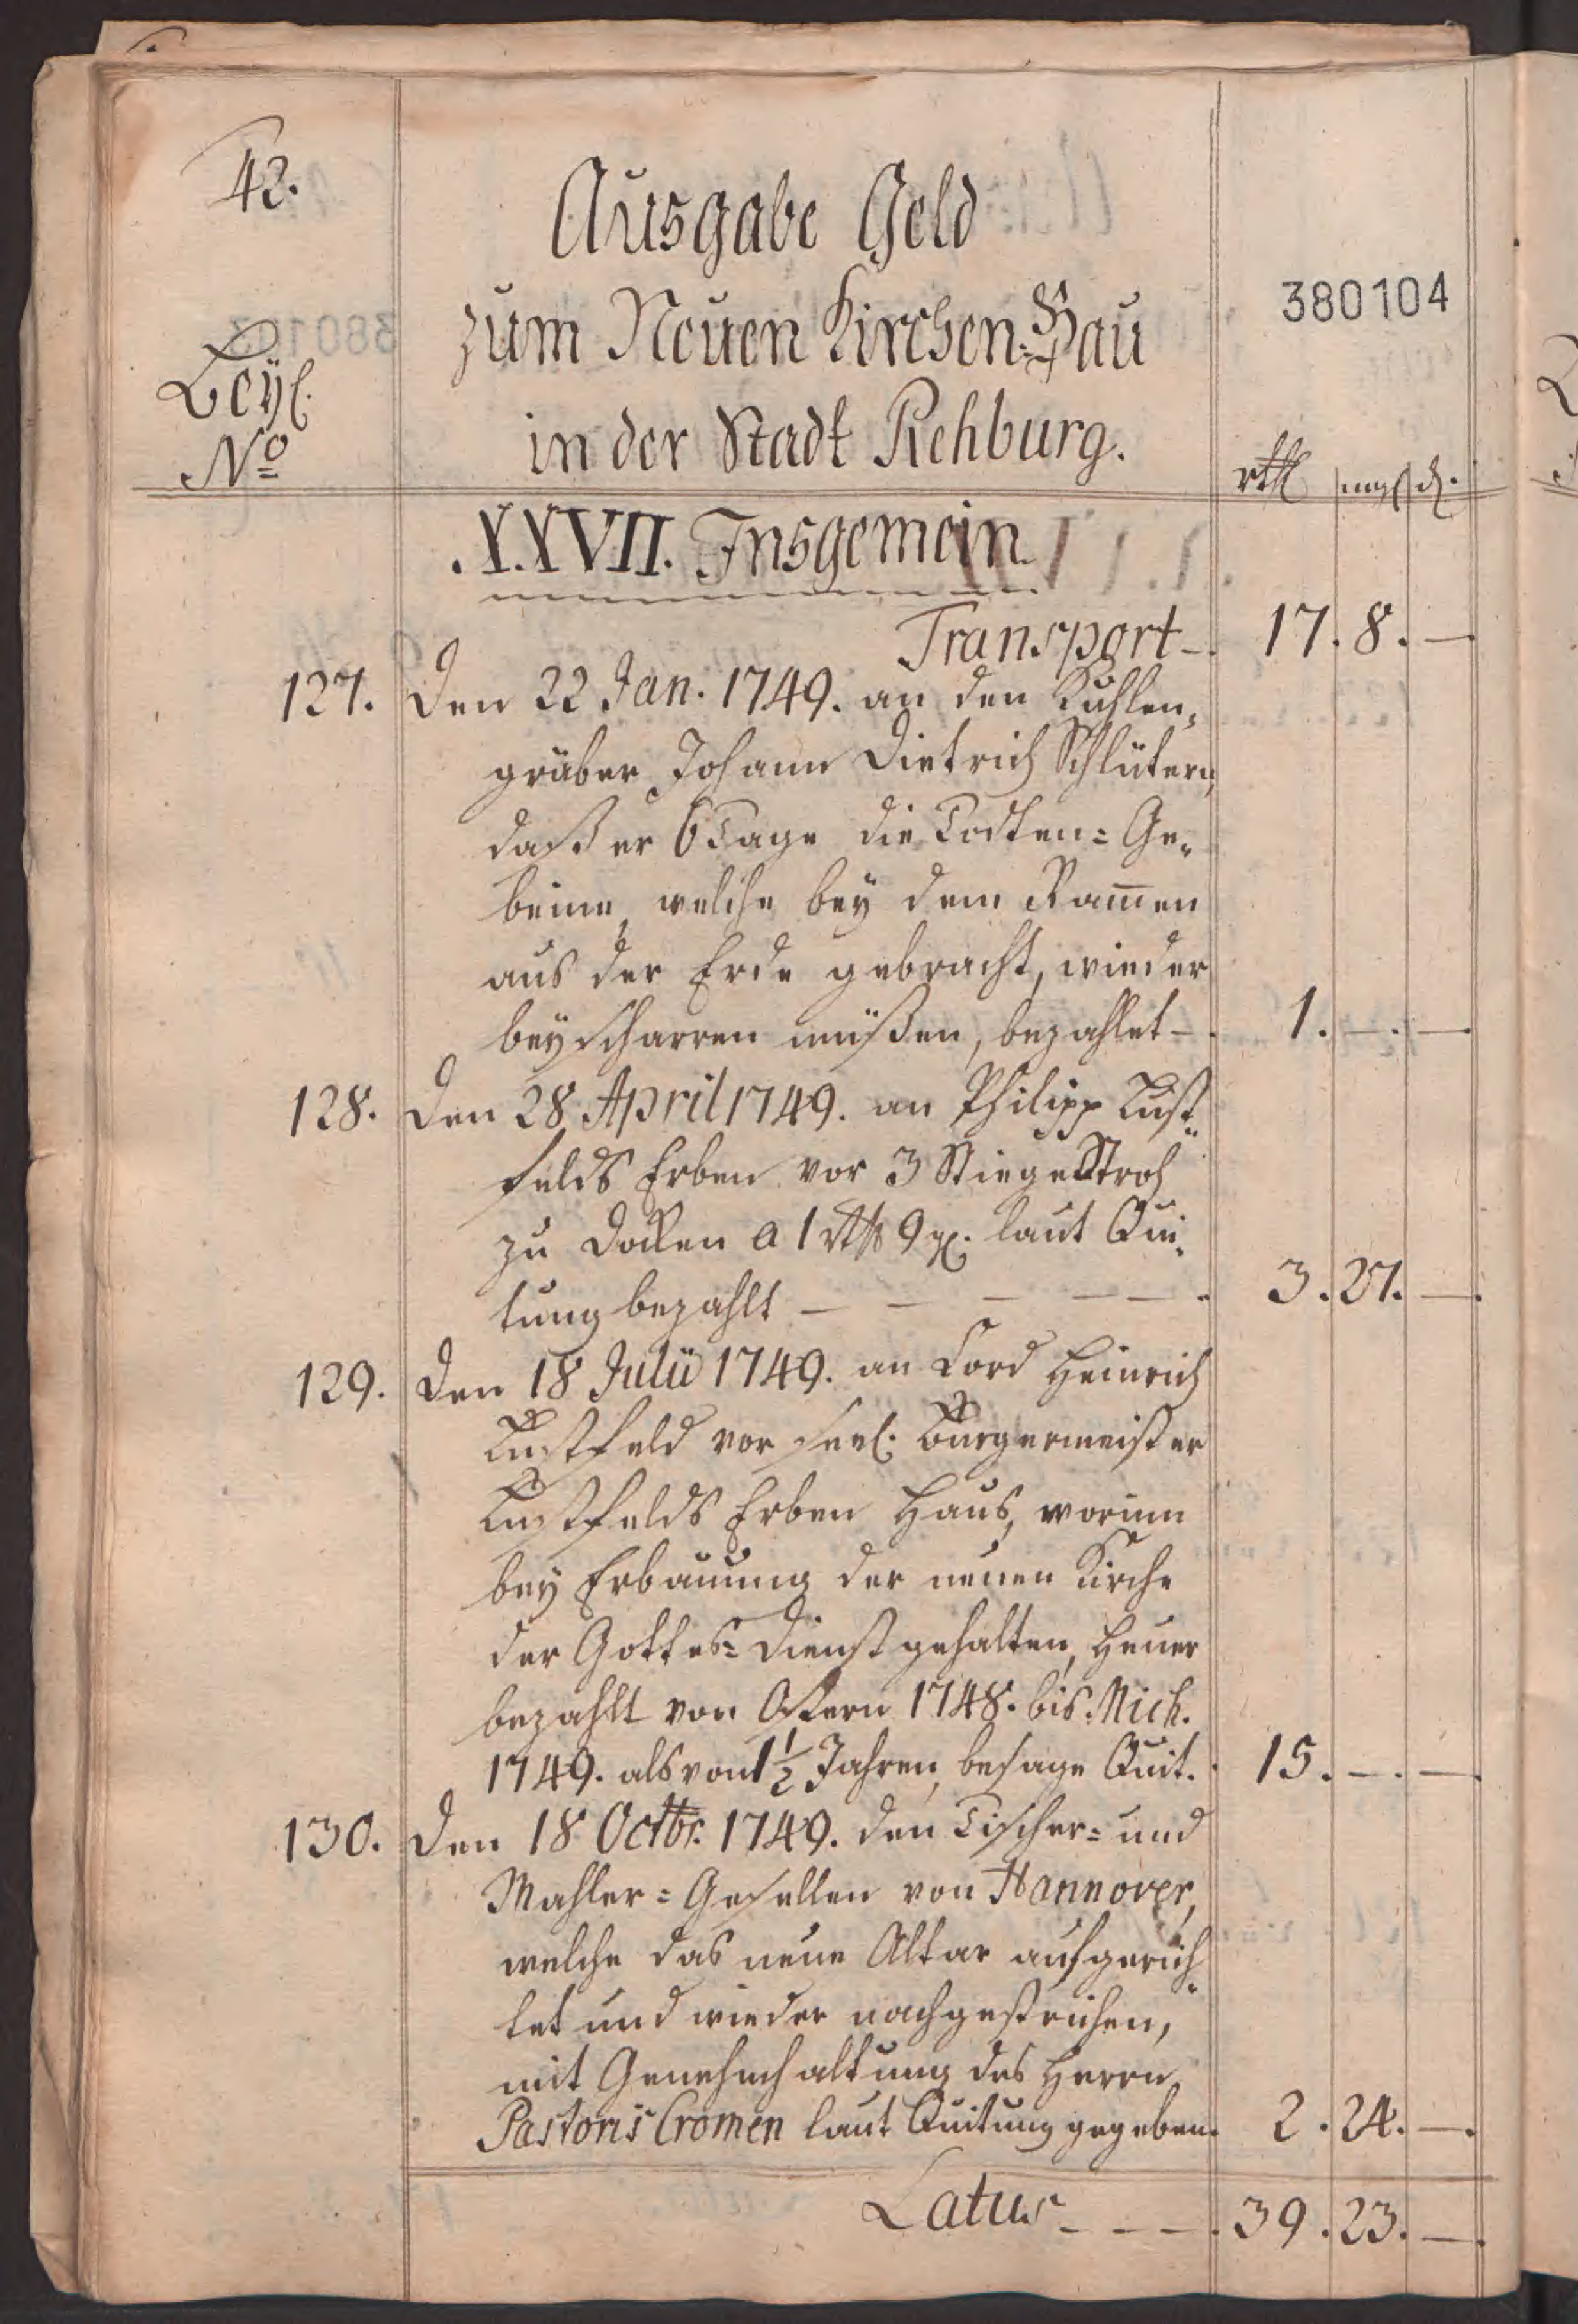 42.
Ausgabe Geld
zum Neuen Kirchen-Bau
in der Stadt Rehburg.
380104
Beyl.
No
rthl mgl d.
XXVII. Insgemein
Transport - 17. 8. —
127. Den 22 Jan. 1749. an den Kuhlen-
gräber Johann Dietrich Schlütern,
daß er 6 Tage die Todten-Ge-
beine, welche bey dem Ram̄en
aus der Erde gebracht, wieder
beyscharren müßen, bezahlet - 1. —. —
128. Den 28 April 1749. an Philipp Lust-
felds Erben vor 3 Stiege Stroh
zu Docken a 1 rthl 9 gl. laut Qui-
tung bezahlt — — — — — 3. 27. —
129. Den 18 Julii 1749. an Cord Heinrich
Lustfeld vor seel. Bürgermeister
Lustfelds Erben Haus, worinn
bey Erbauung der neuen Kirche
der Gottes-Dienst gehalten, Heuer
bezahlt von Ostern 1748. bis Mich.
1749. als von 1½ Jahren, besage Quit. 15. —. —
130. Den 18 Octbr. 1749. den Tischer- und
Mahler-Gesellen von Hannover,
welche das neue Altar aufgerich-
tet und wieder nachgestrichen,
mit Genehmhaltung des Herrn
Pastoris Cromen laut Quitung gegeben. 2. 24. —
Latus - - - 39. 23. —